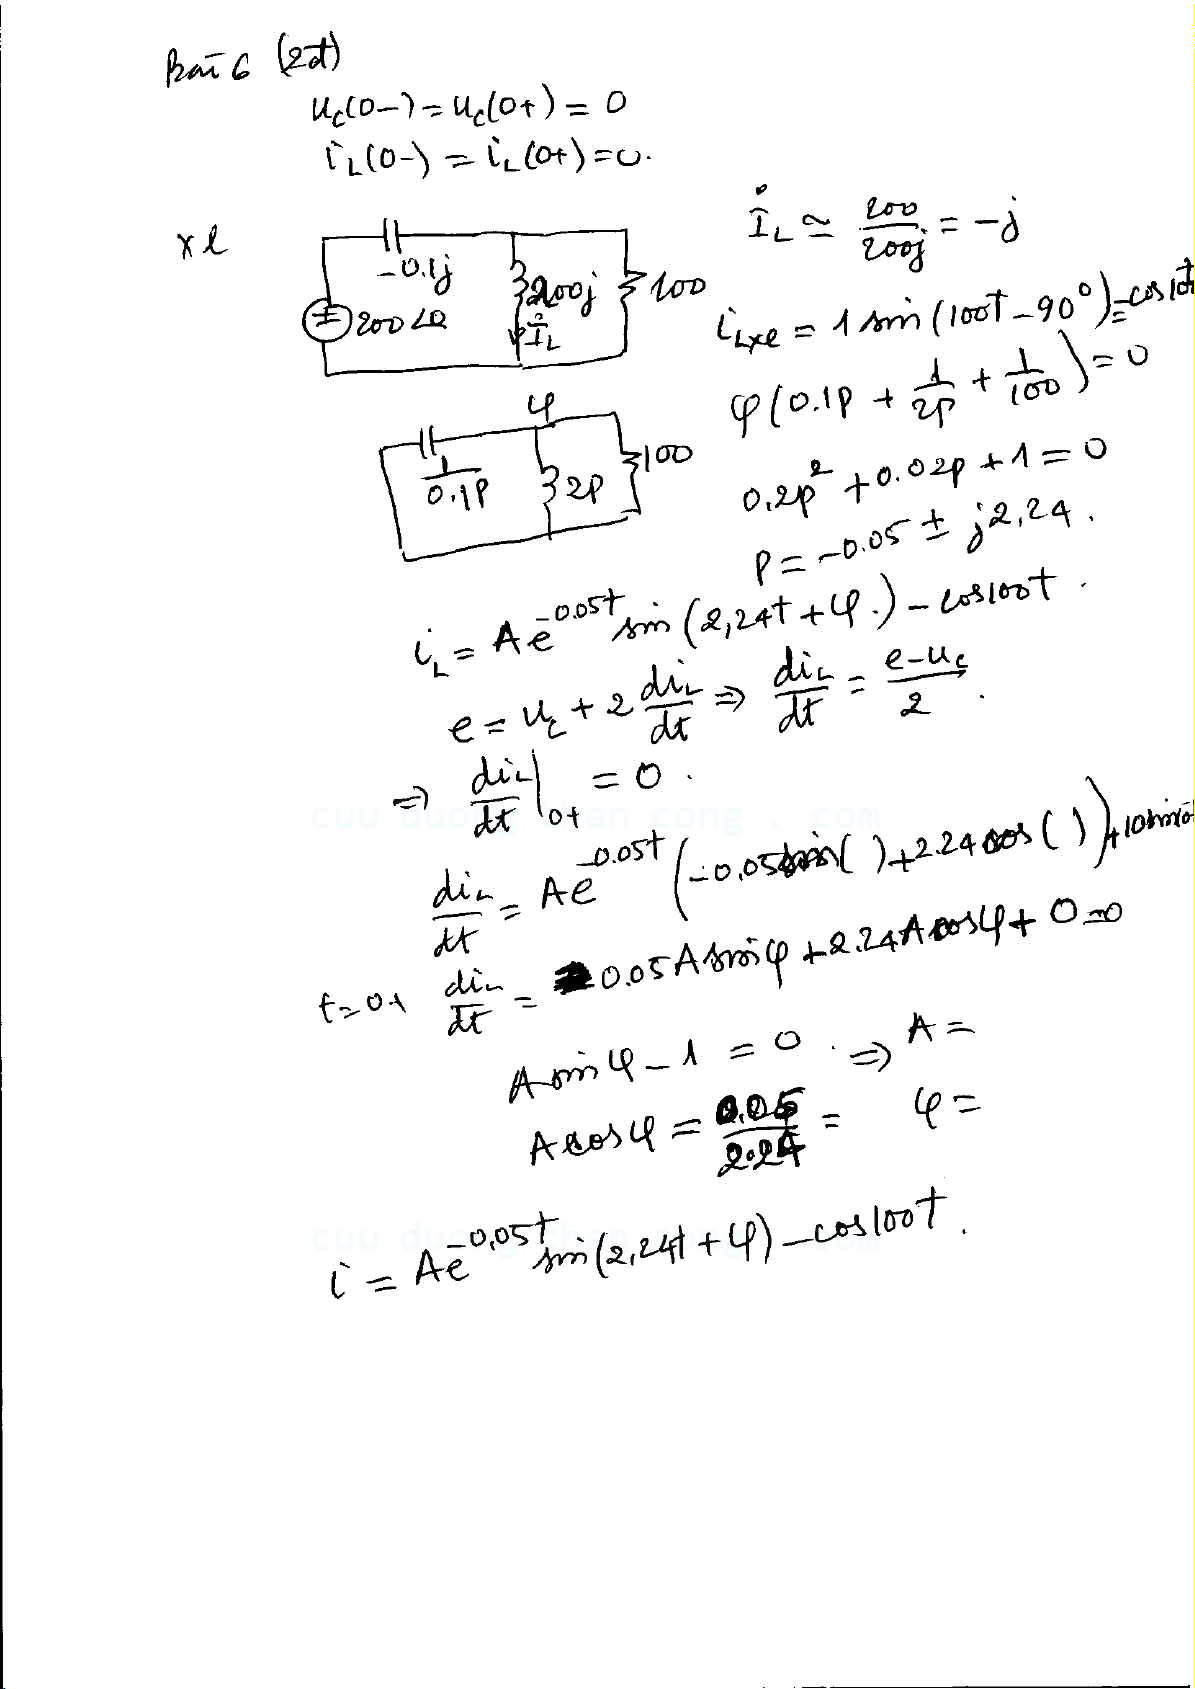 Bài 6 (2đ)
u_C(0-) = u_C(0+) = 0
i_L(0-) = i_L(0+) = 0.
xl
-0.1j
200j
100
200∠0
İ_L
İ_L ≃ 200/200j = -j
i_Lxl = 1 sin(100t - 90°) = -cos100t
φ
1/0.1P
2P
100
φ(0.1P + 1/2P + 1/100) = 0
0.2p² + 0.02p + 1 = 0
P = -0.05 ± j2,24.
i_L = Ae^-0.05t sin(2,24t + φ.) - cos100t.
e = u_C + 2 di_L/dt ⇒ di_L/dt = (e - u_C)/2.
⇒ di_L/dt|0+ = 0.
cuu duong than cong . com
di_L/dt = Ae^-0.05t (-0.05sin( ) + 2.24cos( ))
t=0+ di_L/dt = -0.05Asinφ + 2.24Acosφ + 0 = 0
Asinφ - 1 = 0. ⇒ A =
Acosφ = 0.05/2.24 = φ =
cuu duong than cong . com
i = Ae^-0,05t sin(2,24t + φ) - cos100t.